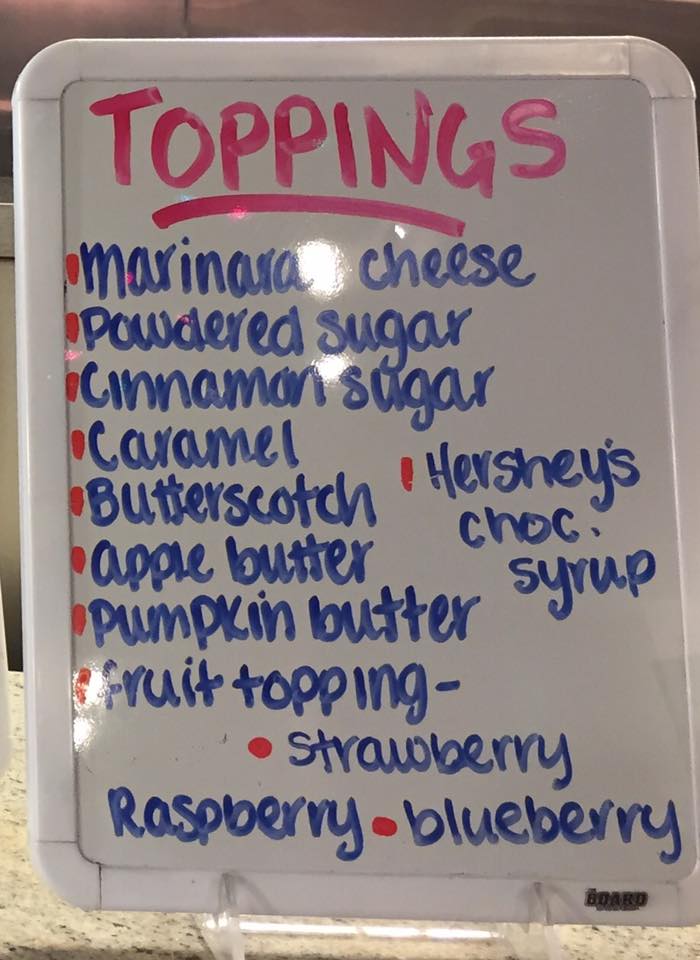 TOPPINGS
marinara cheese
Powdered sugar
Cinnamon sugar
Caramel
Butterscotch
apple butter
pumpkin butter
fruit topping-
• Strawberry
Raspberry • blueberry
Hershey's
choc.
syrup
BOARD